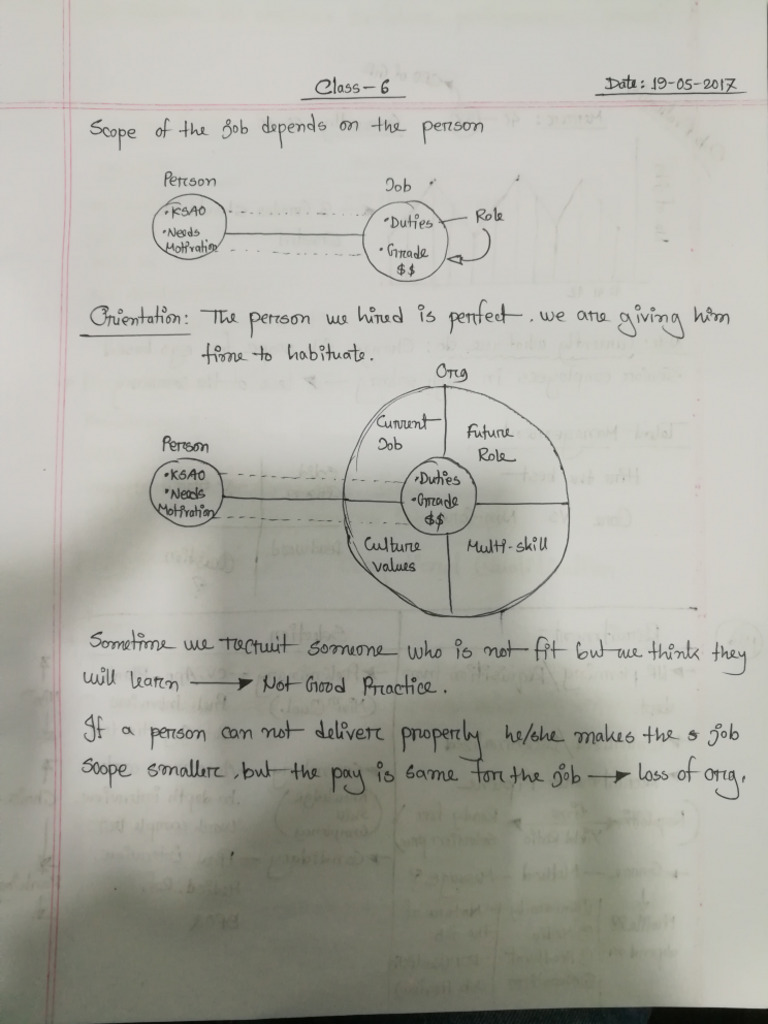 Class-6
Date: 19-05-2017
Scope of the job depends on the person
Person
Job
• KSAO
• Needs
Motivation
• Duties
• Grade
$$
Role
Orientation: The person we hired is perfect. we are giving him
time to habituate.
Org
Person
• KSAO
• Needs
Motivation
Current
Job
Future
Role
• Duties
• Grade
$$
Culture
values
Multi-skill
Sometime we recruit someone who is not fit but we think they
will learn → Not Good Practice.
If a person can not deliver properly he/she makes the job
scope smaller, but the pay is same for the job → loss of org.